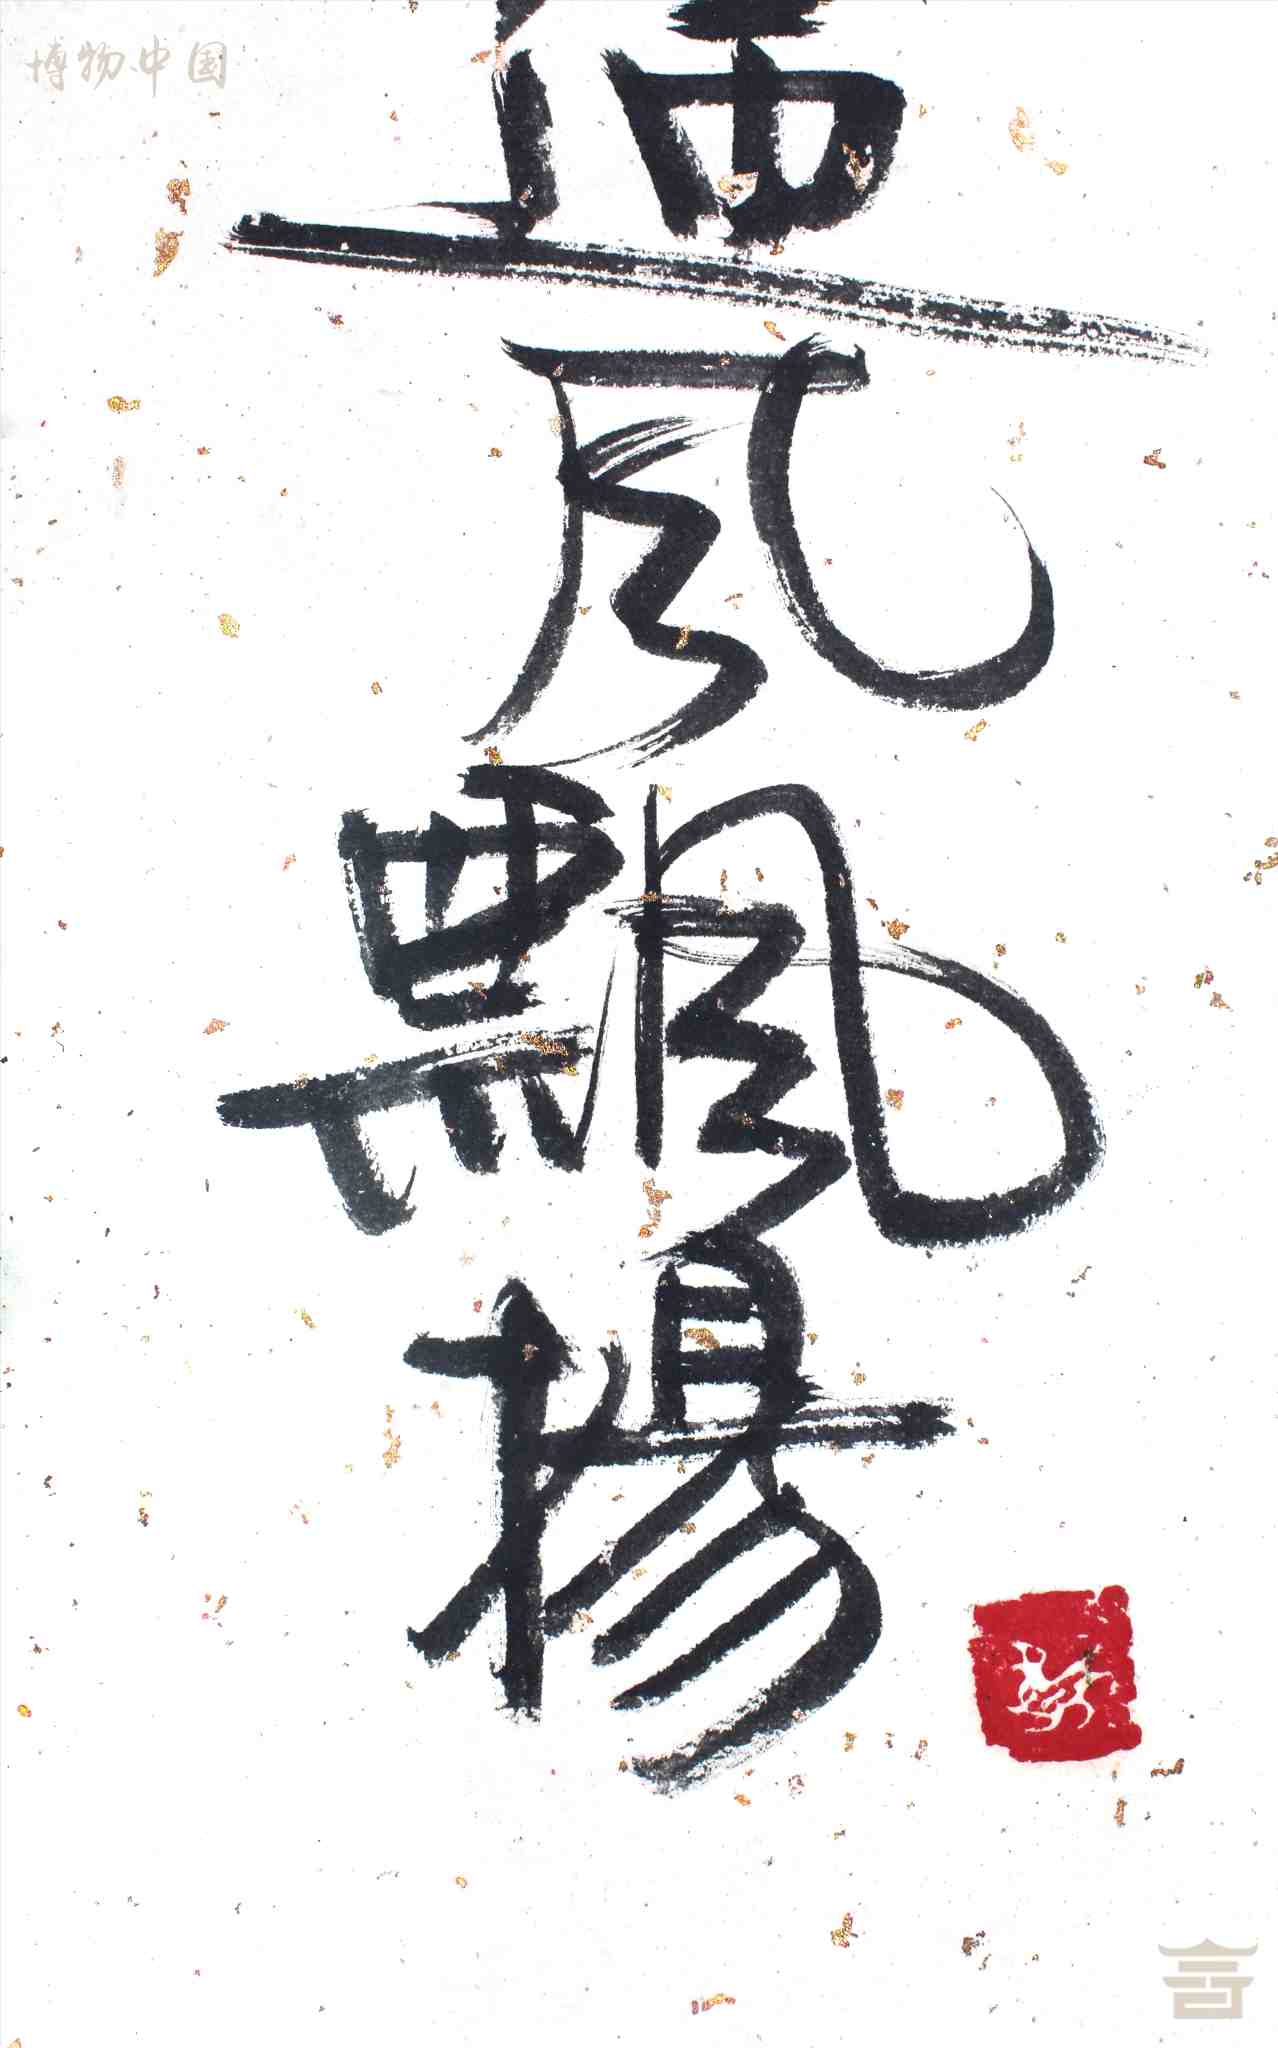 博物中国
风飄揚